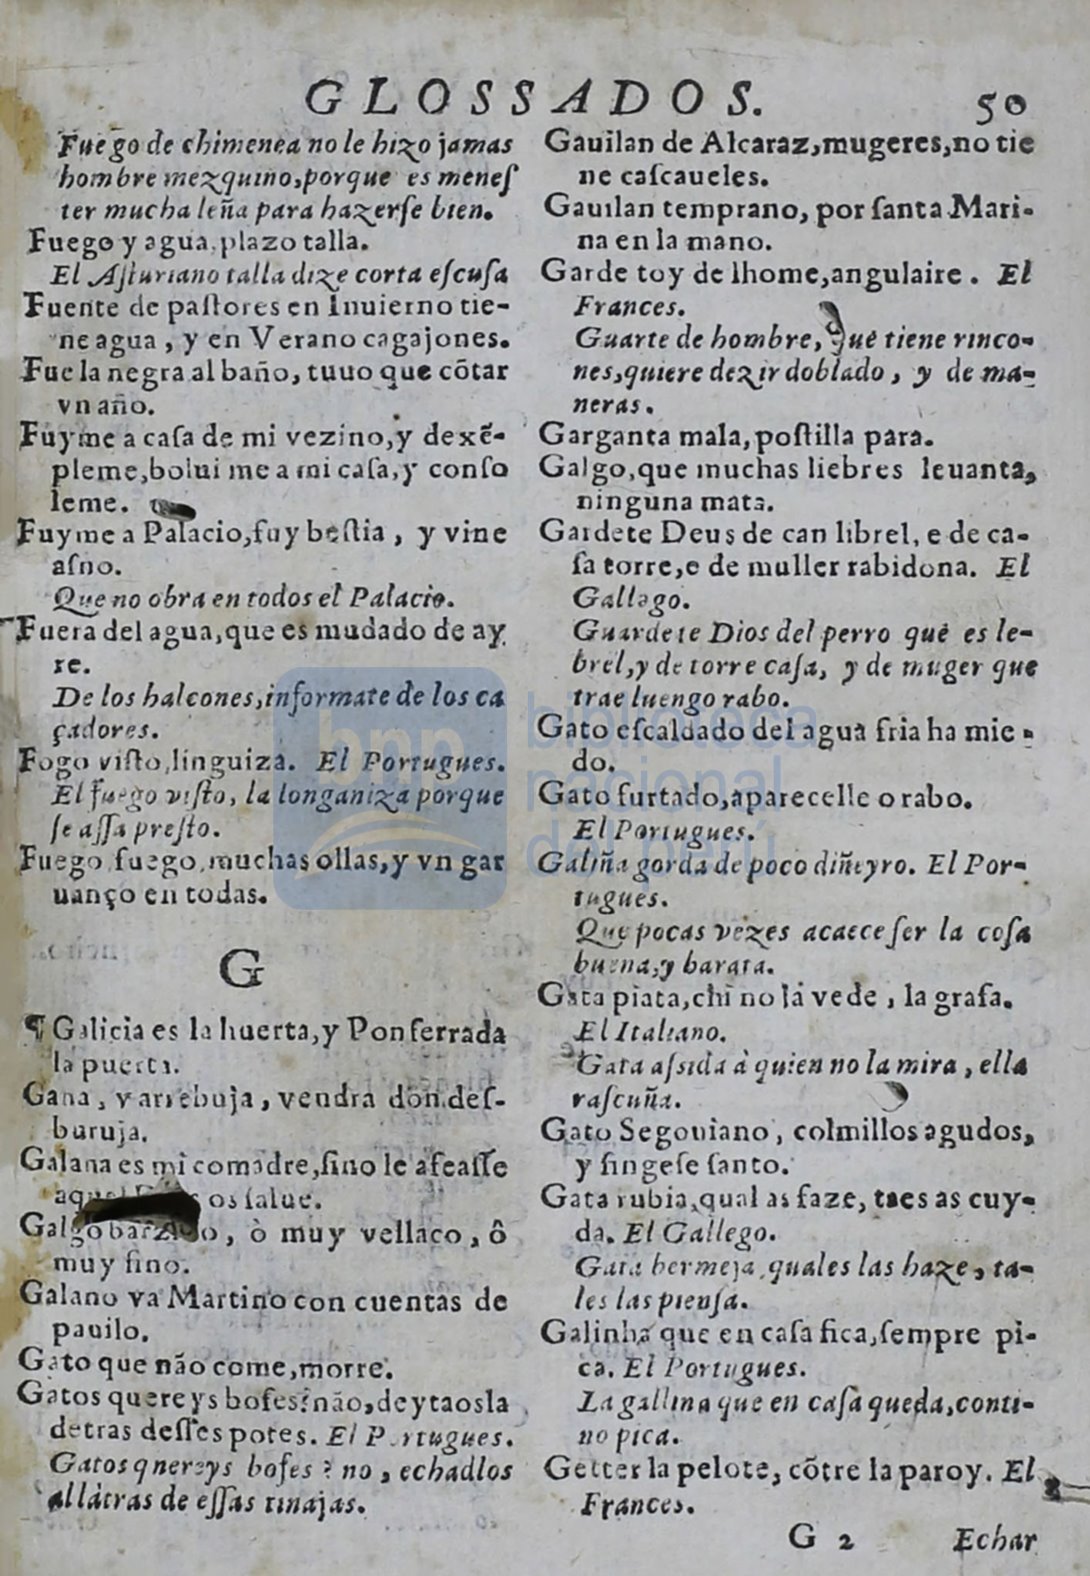 GLOSSADOS. 50
Fuego de chimenea no le hizo jamas
hombre mezquino,porque es meneſ
ter mucha leña para hazerſe bien.
Fuego y agua,plazo talla.
El Aſturiano talla dize corta eſcuſa
Fuente de paſtores en Inuierno tie-
ne agua, y en Verano cagajones.
Fue la negra al baño, tuuo que cõtar
vn año.
Fuyme a caſa de mi vezino,y dexẽ-
pleme,bolui me a mi caſa,y conſo
leme.
Fuyme a Palacio,fuy beſtia, y vine
aſno.
Que no obra en todos el Palacio.
Fuera del agua,que es mudado de ay
re.
De los halcones,informate de los ca
çadores.
Fogo viſto,linguiza. El Portugues.
El fuego viſto, la longaniza porque
ſe aſſa preſto.
Fuego,fuego,muchas ollas,y vn gar
uanço en todas.
G
¶ Galicia es la huerta,y Ponferrada
la puerta.
Gana, y arrebuja, vendra don.deſ-
buruja.
Galana es mi comadre,ſino le afeaſſe
os ſalue.
Galgo , ò muy vellaco, ô
muy fino.
Galano va Martino con cuentas de
pauilo.
Gato que não come,morre.
Gatos quereys bofes?não,deytaosla
detras deſſes potes. El Portugues.
Gatos quereys bofes? no, echadlos
allàtras de eſſas tinajas.
Gauilan de Alcaraz,mugeres,no tie
ne caſcaueles.
Gauilan temprano, por ſanta Mari-
na en la mano.
Garde toy de lhome,angulaire. El
Frances.
Guarte de hombre, que tiene rinco-
nes,quiere dezir doblado, y de ma-
neras.
Garganta mala, poſtilla para.
Galgo,que muchas liebres leuanta,
ninguna mata.
Gardete Deus de can librel, e de ca-
ſa torre,e de muller rabidona. El
Gallego.
Guardete Dios del perro que es le-
brel,y de torre caſa, y de muger que
trae luengo rabo.
Gato eſcaldado del agua fria ha mie-
do.
Gato furtado,aparecelle o rabo.
El Portugues.
Galiña gorda de poco diñeyro. El Por-
tugues.
Que pocas vezes acaece ſer la coſa
buena,y barata.
Gata piata,chi no la vede, la grafa.
El Italiano.
Gata aſsida à quien no la mira, ella
raſcuña.
Gato Segouiano, colmillos agudos,
y fingeſe ſanto.
Gata rubia,qual as faze, taes as cuy-
da. El Gallego.
Gata bermeja,quales las haze, ta-
les las pienſa.
Galinha que en caſa fica,ſempre pi-
ca. El Portugues.
La gallina que en caſa queda,conti-
no pica.
Getter la pelote, cõtre la paroy. El
Frances.
G 2 Echar
bnp biblioteca
nacional
del perú